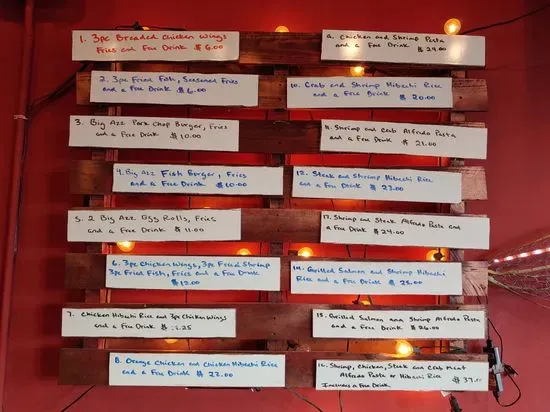 1. 3pc Breaded Chicken Wings
Fries and Free Drink $6.00
2. 3pc Fried Fish, Seasoned Fries
and a Free Drink $6.00
3. Big Azz Pork Chop Burger, Fries
and a Free Drink $10.00
4. Big Azz Fish Burger, Fries
and a Free Drink $10.00
5. 2 Big Azz Egg Rolls, Fries
and a Free Drink $11.00
6. 3pc Chicken Wings, 3pc Fried Shrimp
3pc Fried Fish, Fries and a Free Drink
$12.00
7. Chicken Hibachi Rice and 3pc Chicken Wings
and a Free Drink $ .25
8. Orange Chicken and Chicken Hibachi Rice
and a Free Drink $ 22.00
9. Chicken and Shrimp Pasta
and a Free Drink $24.00
10. Crab and Shrimp Hibachi Rice
and a Free Drink $20.00
11. Shrimp and Crab Alfredo Pasta
and a Free Drink $21.00
12. Steak and Shrimp Hibachi Rice
and a Free Drink $23.00
13. Shrimp and Steak Alfredo Pasta and
a Free Drink $24.00
14. Grilled Salmon and Shrimp Hibachi
Rice and a Free Drink $25.00
15. Grilled Salmon and Shrimp Alfredo Pasta
and a Free Drink $26.00
16. Shrimp, Chicken, Steak and Crab Meat
Alfredo Pasta or Hibachi Rice $37.00
Includes a Free Drink